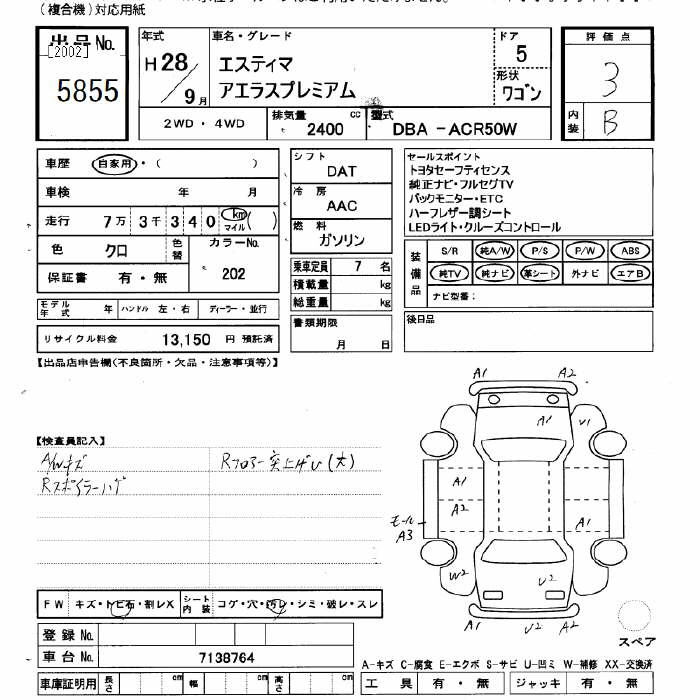 (複合機)対応用紙
出品No.
[2002]
5855
年式
H28/9月
車名・グレード
エスティマ
アエラスプレミアム
ドア
5
形状
ワゴン
評価点
3
内装
B
2WD・4WD
排気量
2400
cc
型式
DBA -ACR50W
車歴
自家用・( )
車検 年 月
走行 7万 3千 3 4 0 km マイル ( )
色 クロ 色替 カラーNo.
202
保証書 有・無
モデル年式 年 ハンドル 左・右 ディーラー・並行
リサイクル料金 13,150 円 預託済
シフト
DAT
冷房
AAC
燃料
ガソリン
乗車定員 7 名
積載量 kg
総重量 kg
書類期限
月 日
セールスポイント
トヨタセーフティセンス
純正ナビ・フルセグTV
バックモニター・ETC
ハーフレザー調シート
LEDライト・クルーズコントロール
装備品
S/R 純A/W P/S P/W ABS
純TV 純ナビ 革シート 外ナビ エアB
ナビ型番:
後日品
【出品店申告欄(不良箇所・欠品・注意事項等)】
【検査員記入】
A/Wキズ
Rフロアー突上げび(大)
Rスポイラーハゲ
A1 A2
A1 V1
A1
A2
モール
A3
A1
W2 U2
A1 U2 A2
スペア
FW キズ・トビ石・割レX シート内装 コゲ・穴・汚レ・シミ・破レ・スレ
登録No.
車台No. 7138764
車庫証明用 長さ cm 幅 cm 高さ cm
A-キズ C-腐食 E-エクボ S-サビ U-凹ミ W-補修 XX-交換済
工具 有・無 ジャッキ 有・無